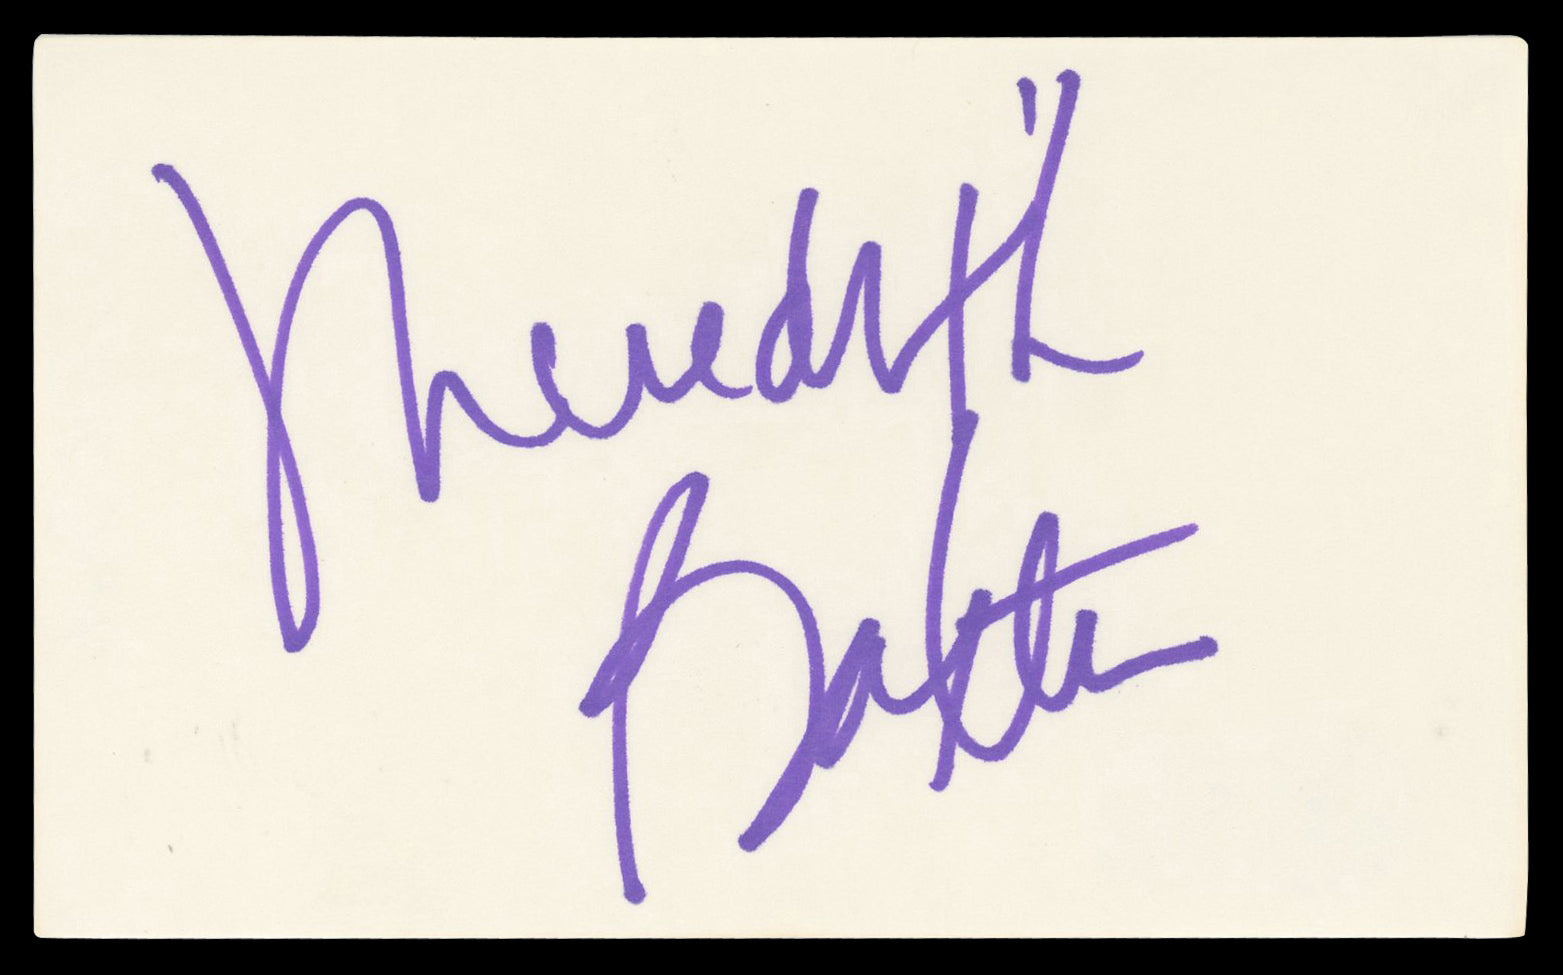 Meredith
Baxter